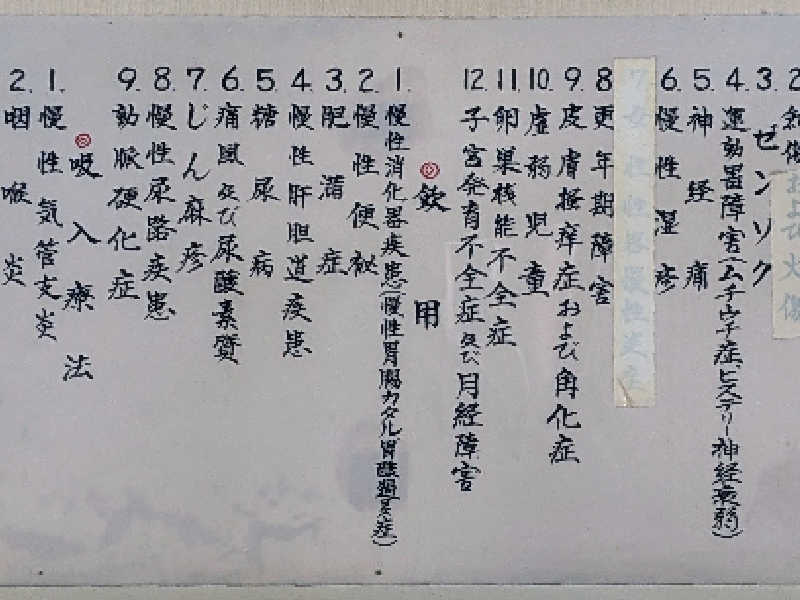 2. 創傷および火傷
3. ゼンソク
4. 運動器障害(ムチウチ症、ヒステリー神経衰弱)
5. 神経痛
6. 慢性湿疹
7. 女性性器慢性炎症
8. 更年期障害
9. 皮膚掻痒症および角化症
10. 虚弱児童
11. 卵巣機能不全症
12. 子宮発育不全症及び月経障害
飲用
1. 慢性消化器疾患(慢性胃腸カタル胃酸過多症)
2. 慢性便秘
3. 肥満症
4. 慢性肝胆道疾患
5. 糖尿病
6. 痛風及び尿酸素質
7. じん麻疹
8. 慢性尿路疾患
9. 動脈硬化症
吸入療法
1. 慢性気管支炎
2. 咽喉炎